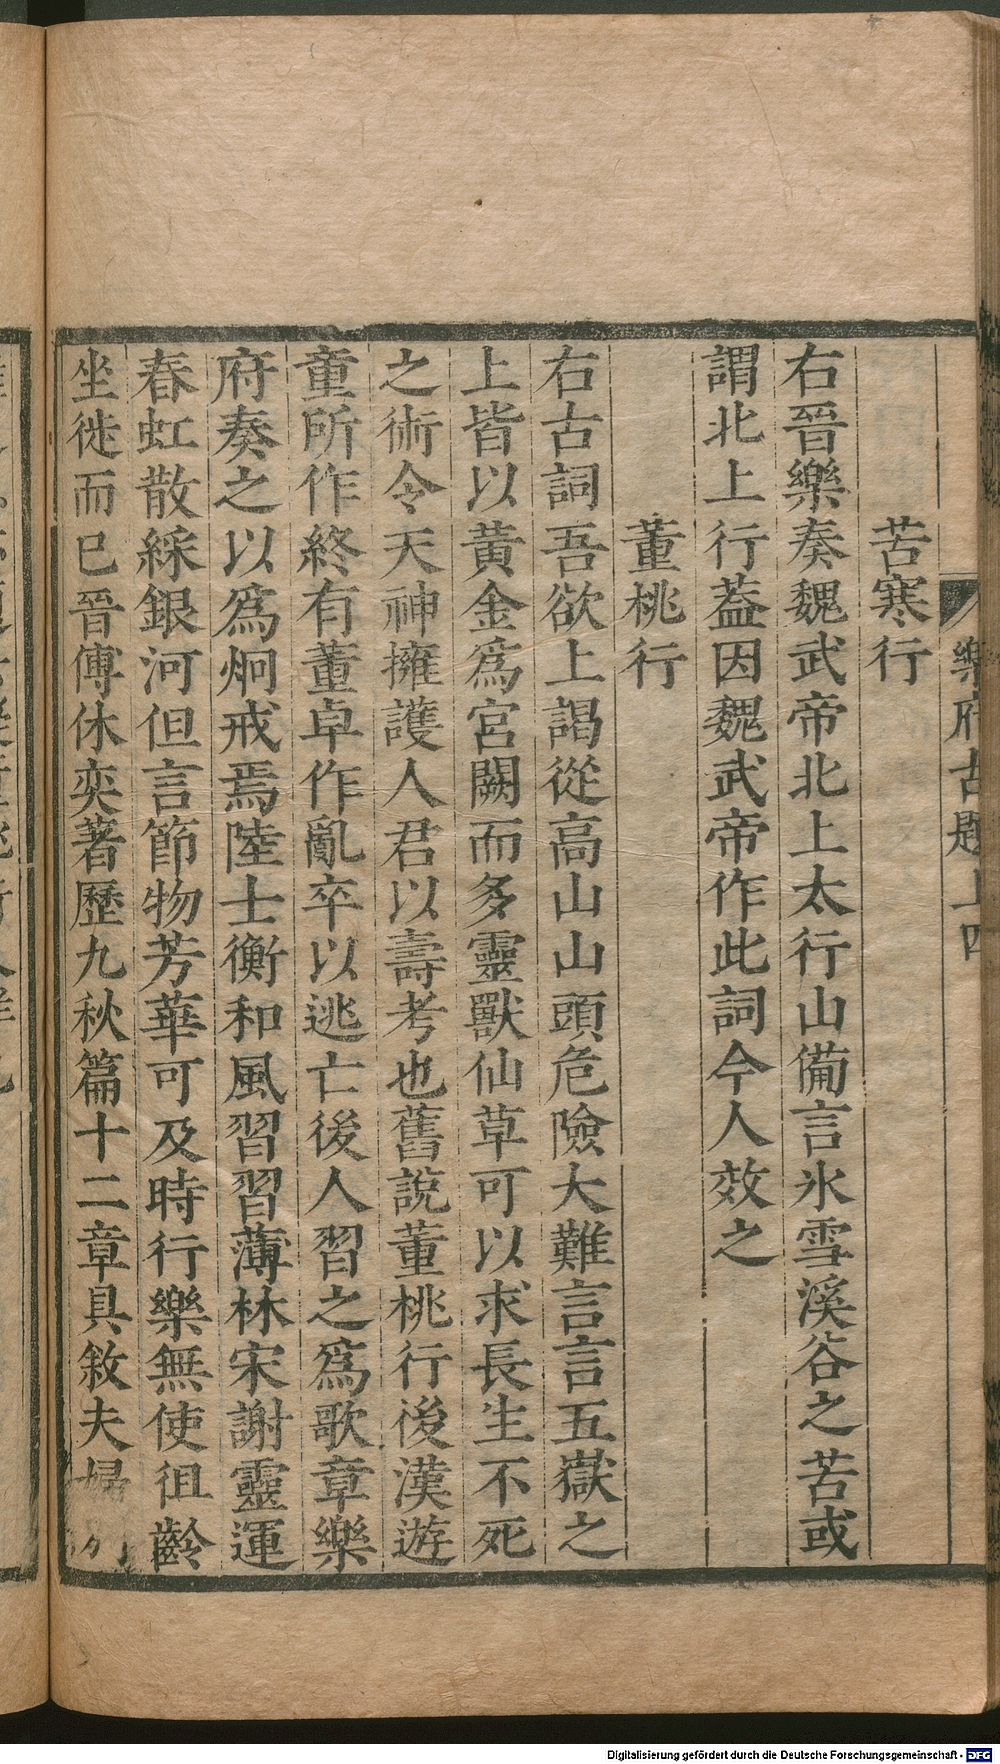 樂府古題上四
苦寒行
右晉樂奏魏武帝北上太行山備言氷雪溪谷之苦或
謂北上行葢因魏武帝作此詞今人效之
董桃行
右古詞吾欲上謁從高山山頭危險大難言言五嶽之
上皆以黃金爲宮闕而多靈獸仙草可以求長生不死
之術令天神擁護人君以壽考也舊說董桃行後漢遊
童所作終有董卓作亂卒以逃亡後人習之爲歌章樂
府奏之以爲炯戒焉陸士衡和風習習薄林宋謝靈運
春虹散綵銀河但言節物芳華可及時行樂無使徂齡
坐徙而已晉傅休奕著歷九秋篇十二章具敘夫婦別
Digitalisierung gefördert durch die Deutsche Forschungsgemeinschaft - DFG